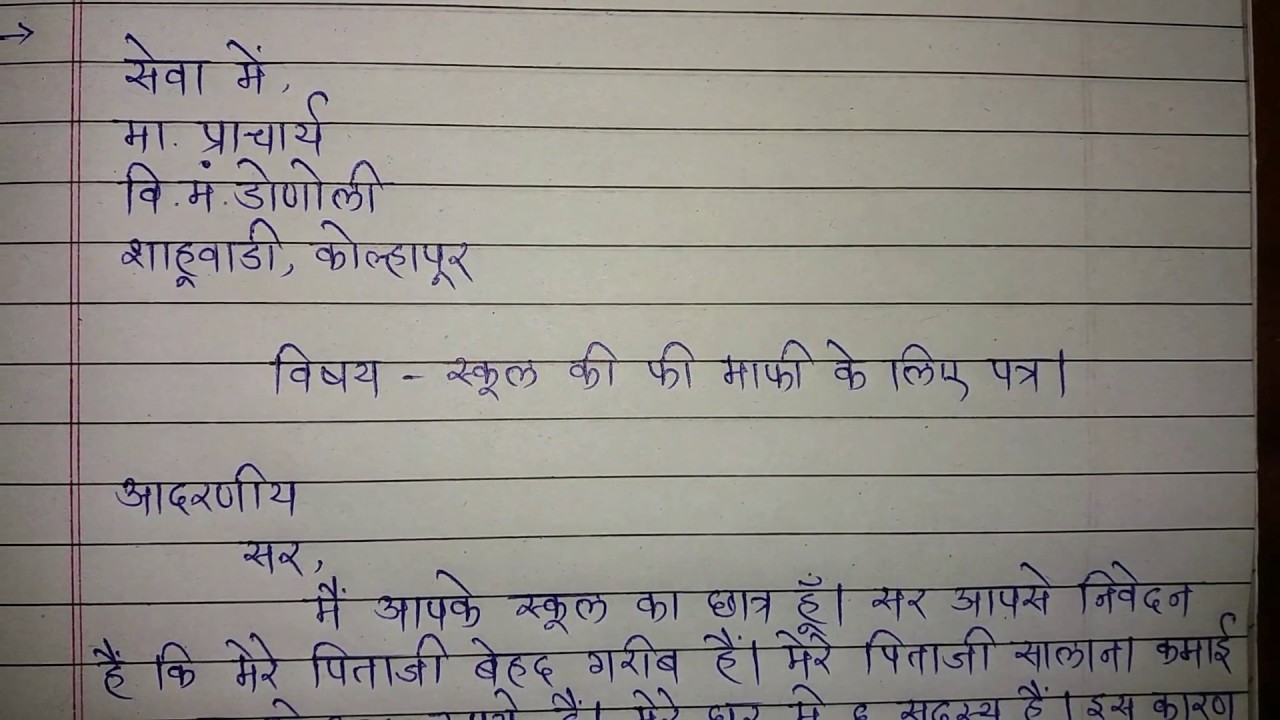 →
सेवा में,
मा. प्राचार्य
वि.मं.डोणोली
शाहूवाडी, कोल्हापूर
विषय - स्कूल की फी माफी के लिए पत्र।
आदरणीय
सर,
मैं आपके स्कूल का छात्र हूँ। सर आपसे निवेदन
हैं कि मेरे पिताजी बेहद गरीब हैं। मेरे पिताजी सालाना कमाई
हैं। मेरे घर मे ६ सदस्य हैं। इस कारण